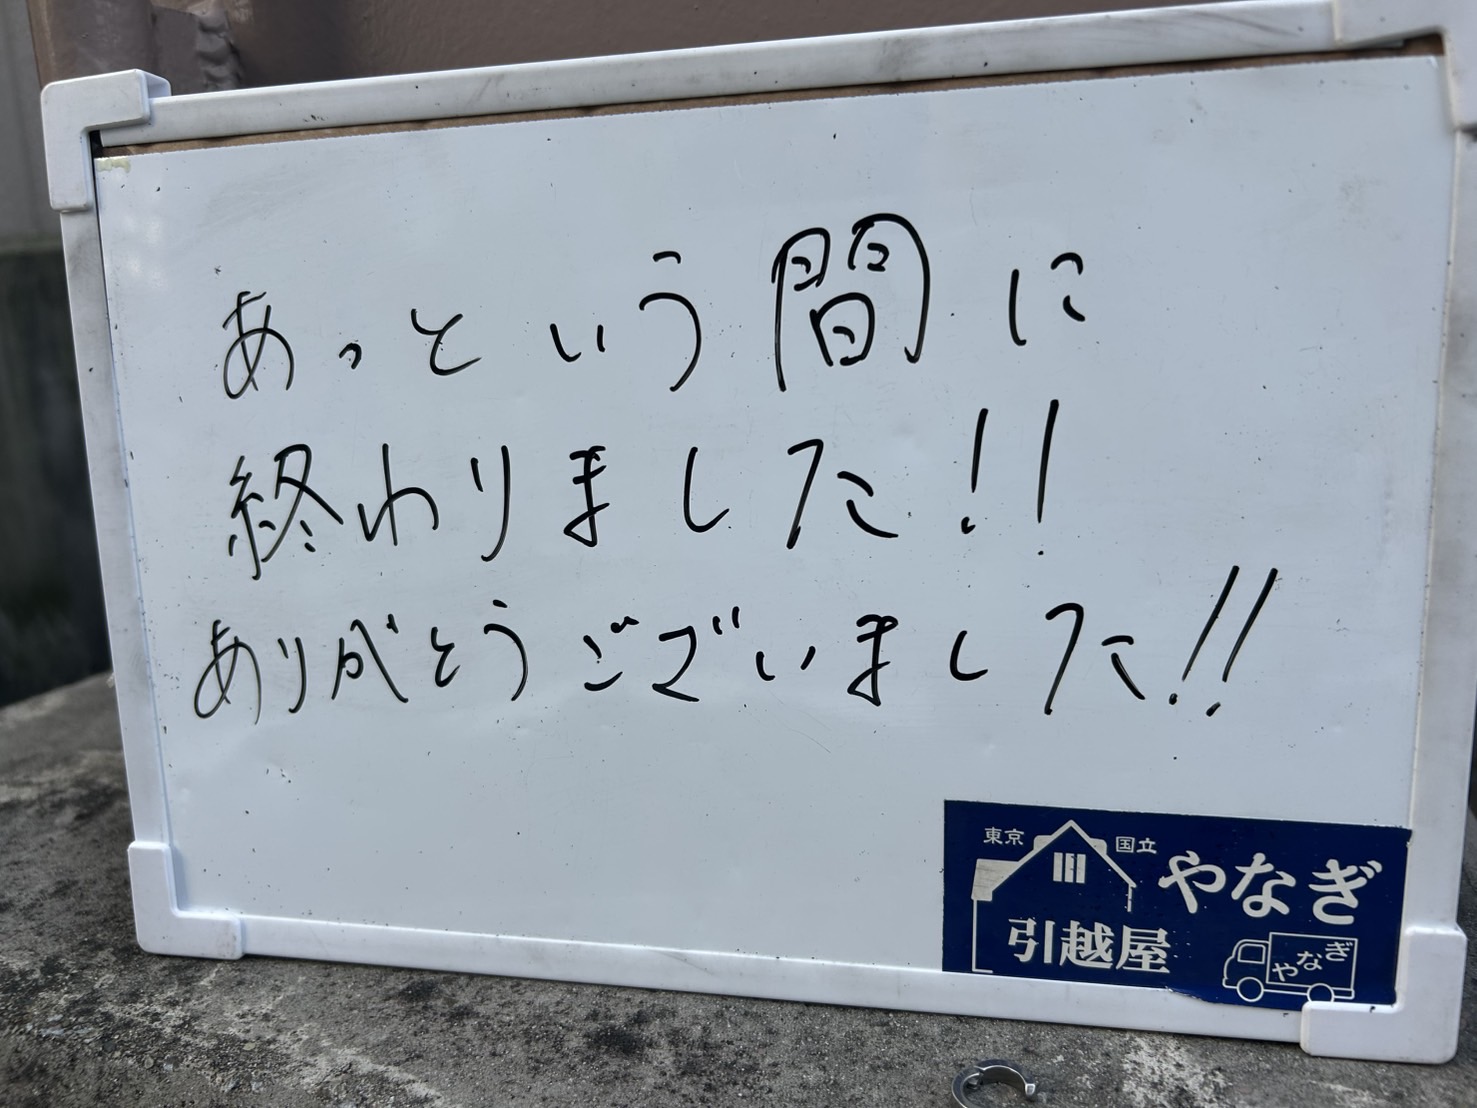 あっという間に
終わりました!!
ありがとうございました!!
東京 国立
やなぎ
引越屋
やなぎ